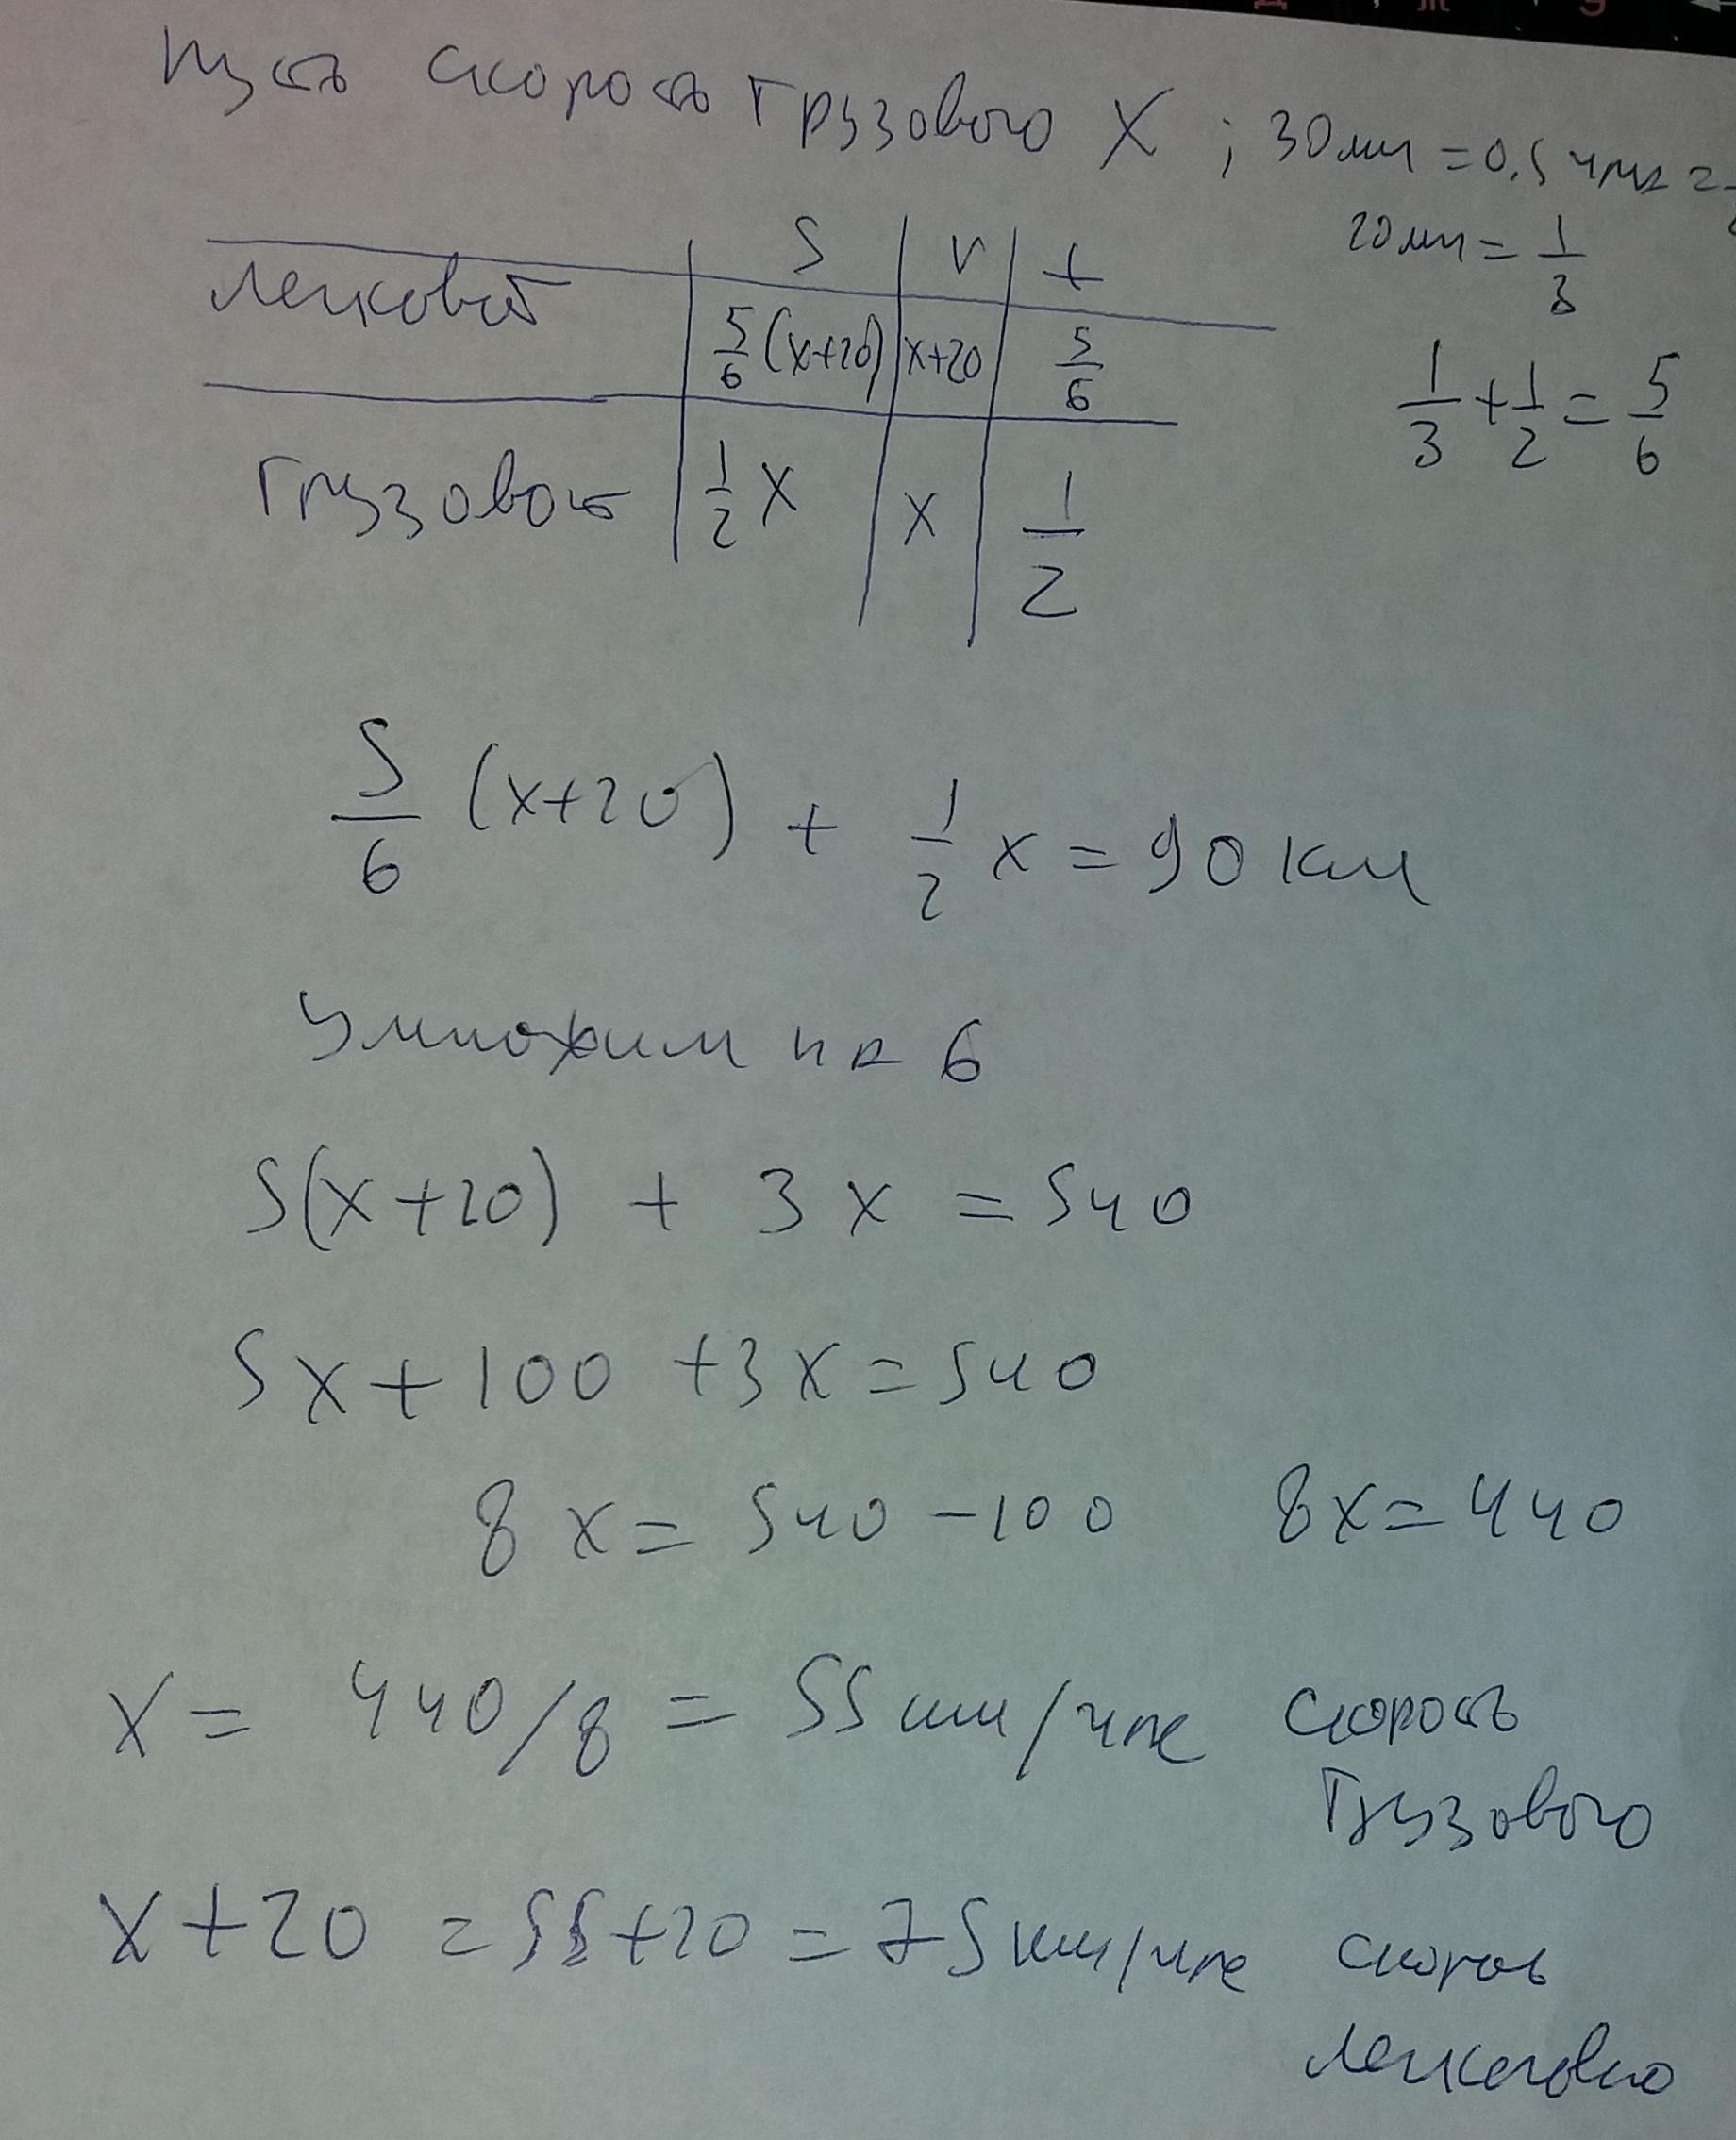 Пусть скорость грузового X ; 30 мин = 0.5 часа =
20 мин = 1/3
S V t
легковой 5/6 (x+20) x+20 5/6
1/3 + 1/2 = 5/6
грузовой 1/2 x x 1/2
5/6 (x+20) + 1/2 x = 90 км
умножим на 6
5(x+20) + 3x = 540
5x + 100 + 3x = 540
8x = 540 - 100 8x = 440
x = 440/8 = 55 км/час скорость
грузового
x + 20 = 55 + 20 = 75 км/час скорость
легкового